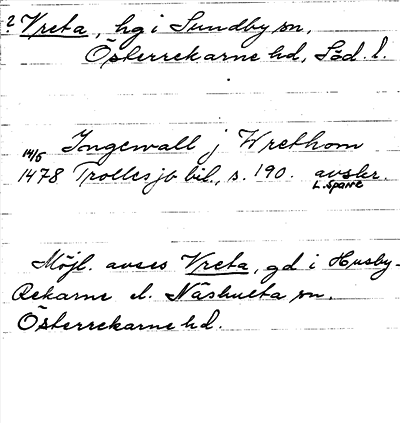 ? Vreta, hg i Sundby sn,
Österrekarne hd, Söd. l.
Ingewall j Wrethom
14/5
1478 Trolles jb bil., s. 190. avskr.
L. Sparre
Möjl. avses Vreta, gd i Husby-
Rekarne el. Näshulta sn,
Österrekarne hd.